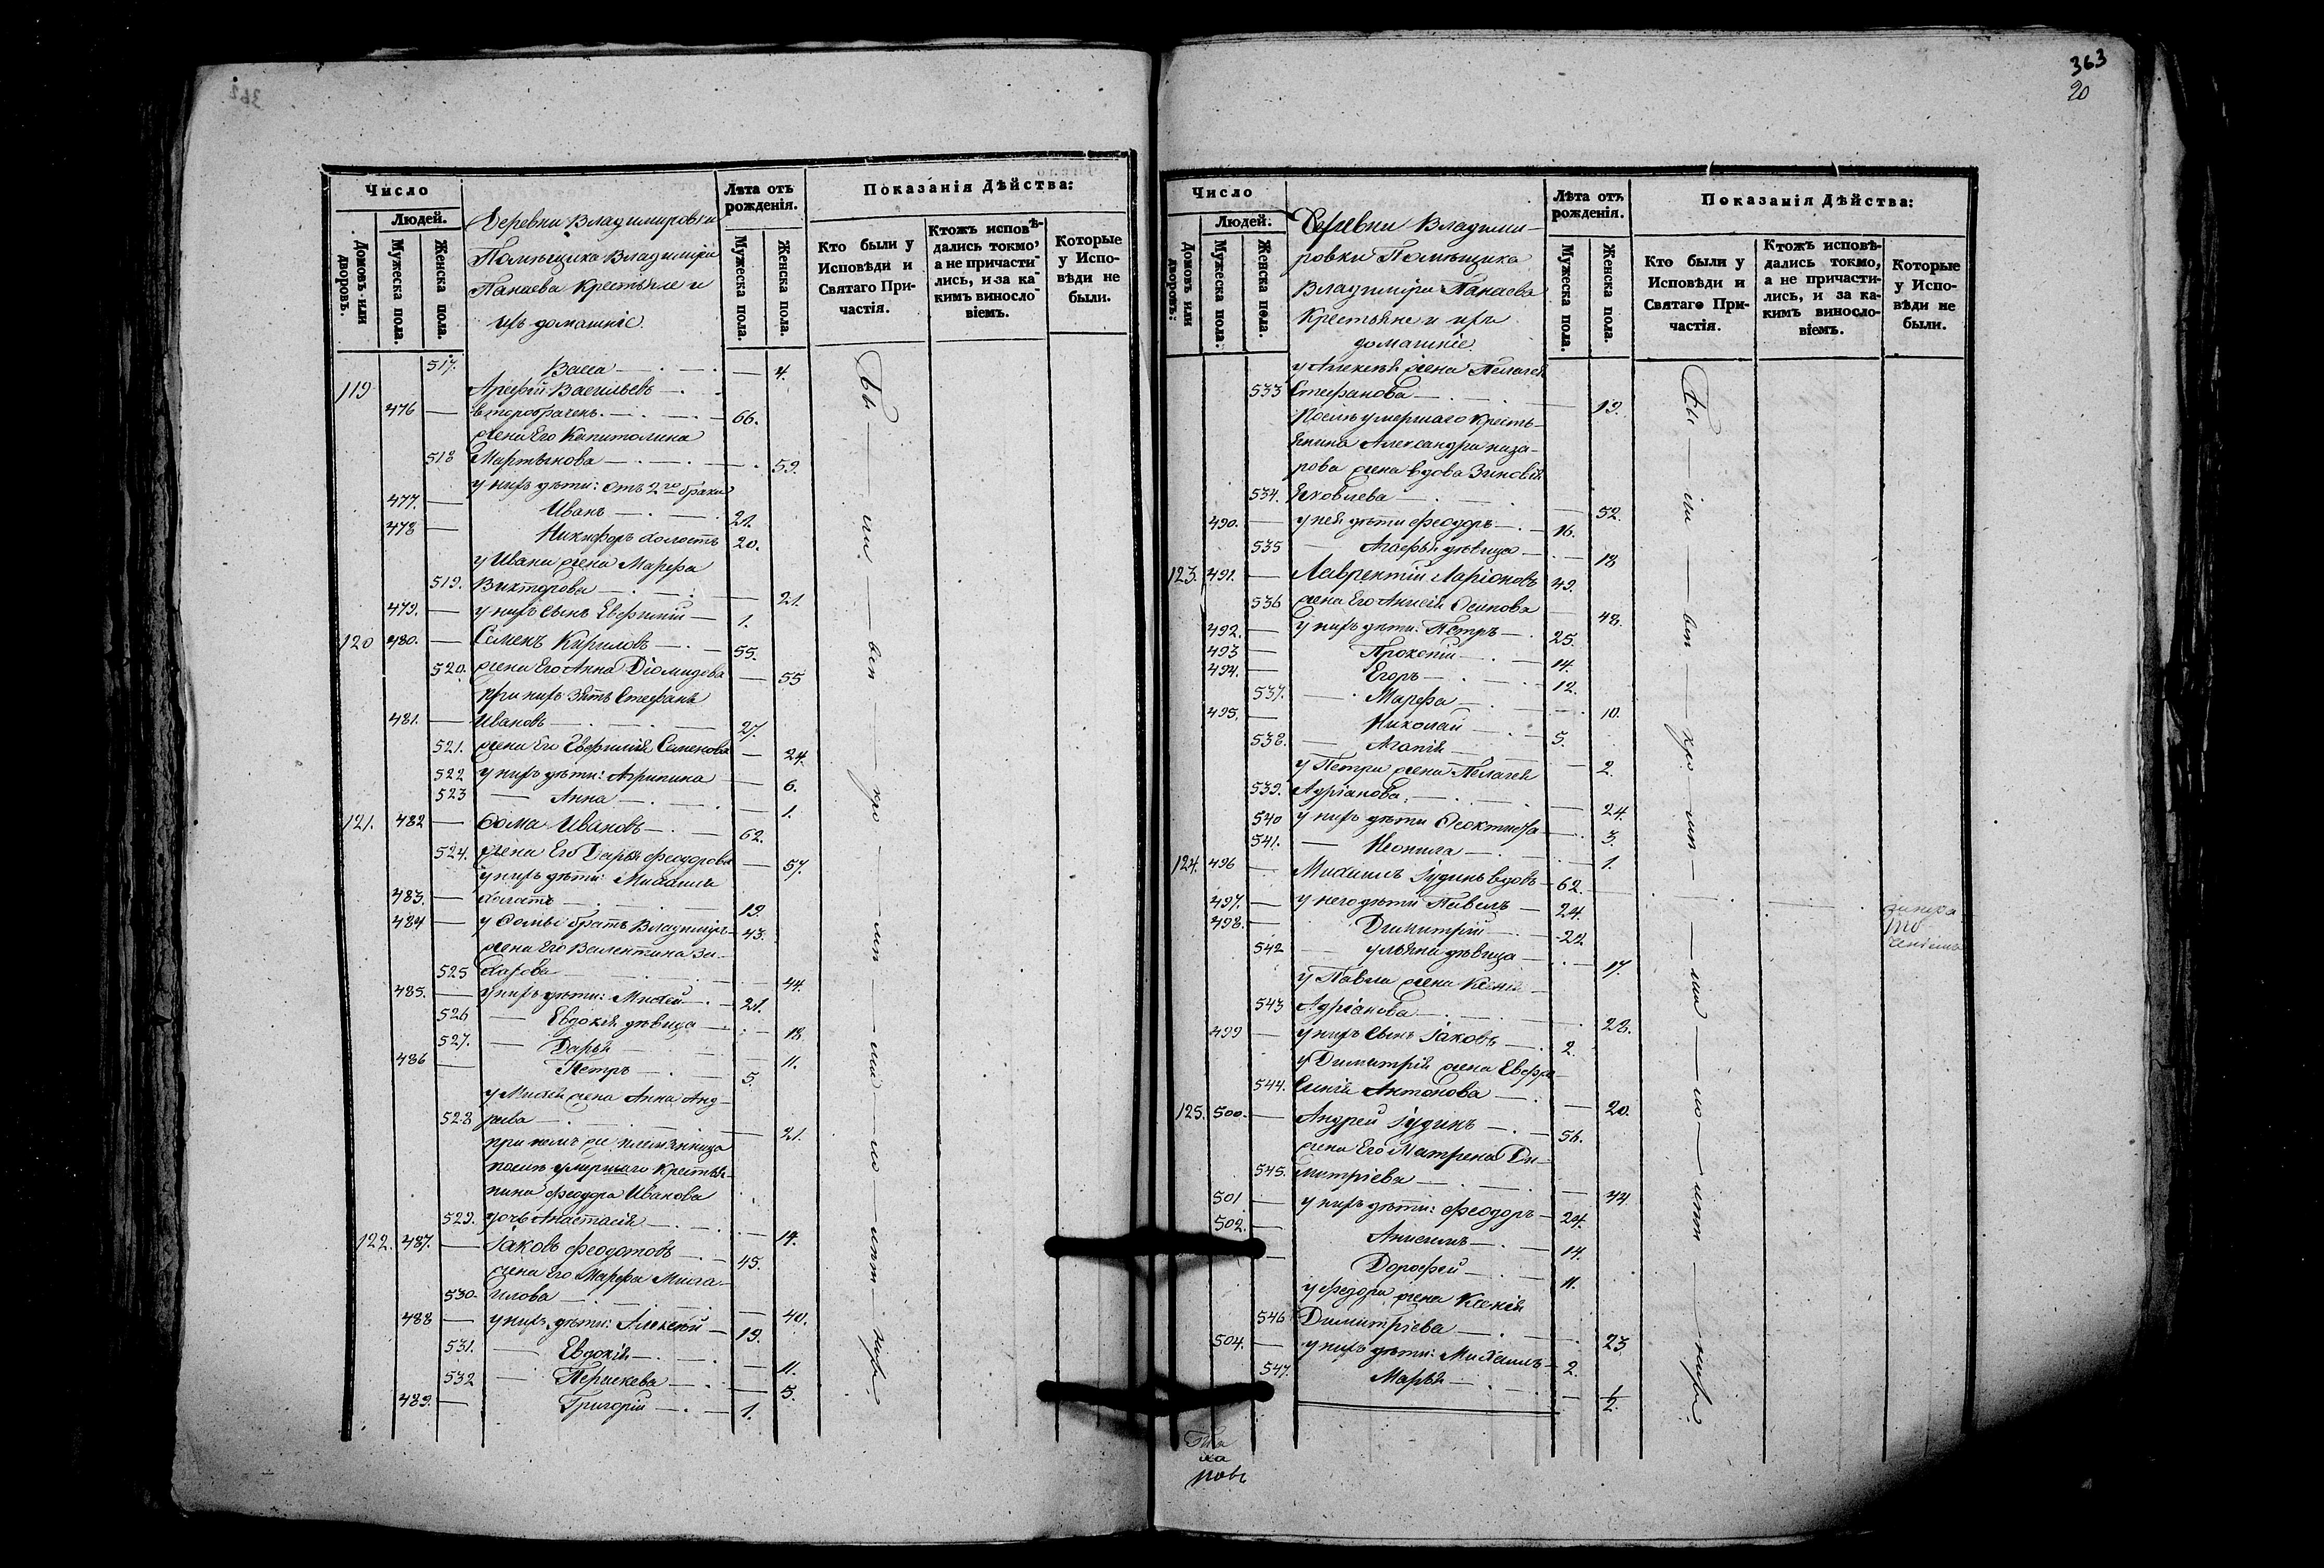 363
20
Число
Людей.
Домовъ или дворовъ.
Мужеска пола.
Женска пола.
Деревни Владимировки
Помѣщика Владимiра
Панаева Крестьяне и
ихъ домашнiе
Лѣта отъ рожденiя.
Мужеска пола.
Женска пола.
Показанiя Дѣйства:
Кто были у Исповѣди и Святаго Причастiя.
Ктожъ исповѣдались токмо, а не причастились, и за какимъ винословiемъ.
Которые у Исповѣди не были.
517. Васса — 4.
119 Арефiй Васильевъ —
476 — второбраченъ. — 66.
жена Его Капитолина
518 Мартынова — 59.
у нихъ дѣти: отъ 2го брака
477. — Иванъ — 21.
478 — Никифоръ холостъ 20.
у Ивана жена Марфа
519. Викторова — 21.
479. — у нихъ сынъ Евфимiй — 1.
120 480. — Семенъ Кириловъ — 55.
520. жена Его Анна Дiомидова — 55
при нихъ зять Стефанъ
481. — Ивановъ — 27.
521. жена Его Евфимiя Семенова — 24.
522 у нихъ дѣти: Агрипина — 6.
523 — Анна — 1.
121. 482 — Фома Ивановъ — 62.
524. жена Его Дарья Феодорова — 57.
у нихъ дѣти: Михаилъ
483. — холостъ — 19.
484 — у Фомы братъ Владимiръ — 43.
жена Его Валентина За-
525 харова — 44.
485. — у нихъ дѣти: Михей — 21.
526 — Евдокiя дѣвица — 18
527. — Дарья — 11.
486 — Петръ — 5.
у Михея жена Анна Анд-
528 реева — 21.
при немъ же племянница
послѣ умершаго Крестья-
нина Феодора Иванова
529. дочь Анастасiя — 14.
122. 487. — Iаковъ Феодотовъ — 45.
жена Его Марфа Миха-
530. илова — 40.
488 — у нихъ дѣти: Алексѣй — 19.
531. — Евдокiя — 11.
532 — Параскева — 5.
489. — Григорiй — 1.
Число
Людей.
Домовъ или дворовъ:
Мужеска пола.
Женска пола.
Деревни Владими-
ровки Помѣщика
Владимiра Панаева
Крестьяне и ихъ
домашнiе
Лѣта отъ рожденiя.
Мужеска пола.
Женска пола.
Показанiя Дѣйства:
Кто были у Исповѣди и Святаго Причастiя.
Ктожъ исповѣдались токмо, а не причастились, и за какимъ винословiемъ.
Которые у Исповѣди не были.
у Алексѣя жена Пелагея
533 Стефанова — 19.
Послѣ умершаго Кресть-
янина Александра Наза-
рова жена вдова Зиновiя
534. Яковлева — 52.
490. — у ней дѣти Феодоръ — 16.
535 — Агафья дѣвица — 18
123. 491. — Лаврентiй Ларiоновъ 49.
536 жена Его Анисiя Осипова — 48.
492. — у нихъ дѣти: Петръ — 25.
493 — Прокопiй — 14.
494. — Егоръ — 12.
537. — Марфа — 10.
495. — Николай — 5.
538. — Агапiя — 2.
у Петра жена Пелагея
539. Адрiанова. — 24.
540 у нихъ дѣти Феоктиста — 3.
541. — Неонила — 1.
124. 496 — Михаилъ Iудинъ вдовъ — 62.
497. — у него дѣти Павелъ — 24.
498. — Димитрiй — 22
542 — Ульяна дѣвица — 17.
у Павла жена Ксенiя
543 Адрiанова — 28.
499 — у нихъ сынъ Iаковъ — 2.
у Димитрiя жена Евфро
544. синiя Антонова — 20.
125. 500. — Андрей Iудинъ — 56.
жена Его Матрена Ди-
545. митрiева — 44.
501 — у нихъ дѣти: Феодоръ — 24.
502. — Анисимъ — 14.
— Дорофей — 11.
у Федора жена Ксенiя
546 Димитрiева — 23
504. — у нихъ дѣти: Михаилъ — 2.
547. Марья — 1/2.